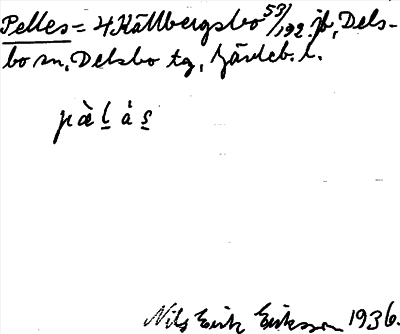 Pelles = 4 Källbergsbo 53/192 jb, Dels-
bo sn, Delsbo tg, Gävleb. l.
pàl̲ås̲
Nils Erik Eriksson 1936.